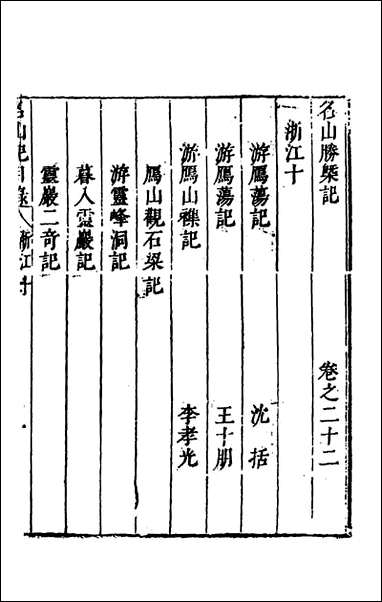 名山勝槩記 卷之二十二
浙江十
游鴈蕩記 沈括
游鴈蕩記 王十朋
游鴈山襍記 李孝光
鴈山觀石梁記
游靈峰洞記
暮入靈巖記
靈巖二奇記
名山記目錄 浙江十